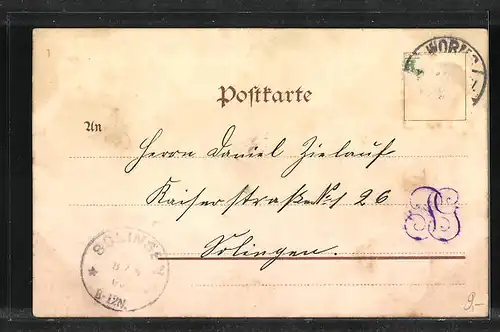 WORMS
Postkarte
An
Herrn Daniel Zielauf
Kaiserstraße No 26
Solingen.
SOLINGEN
8-12N.
9,-